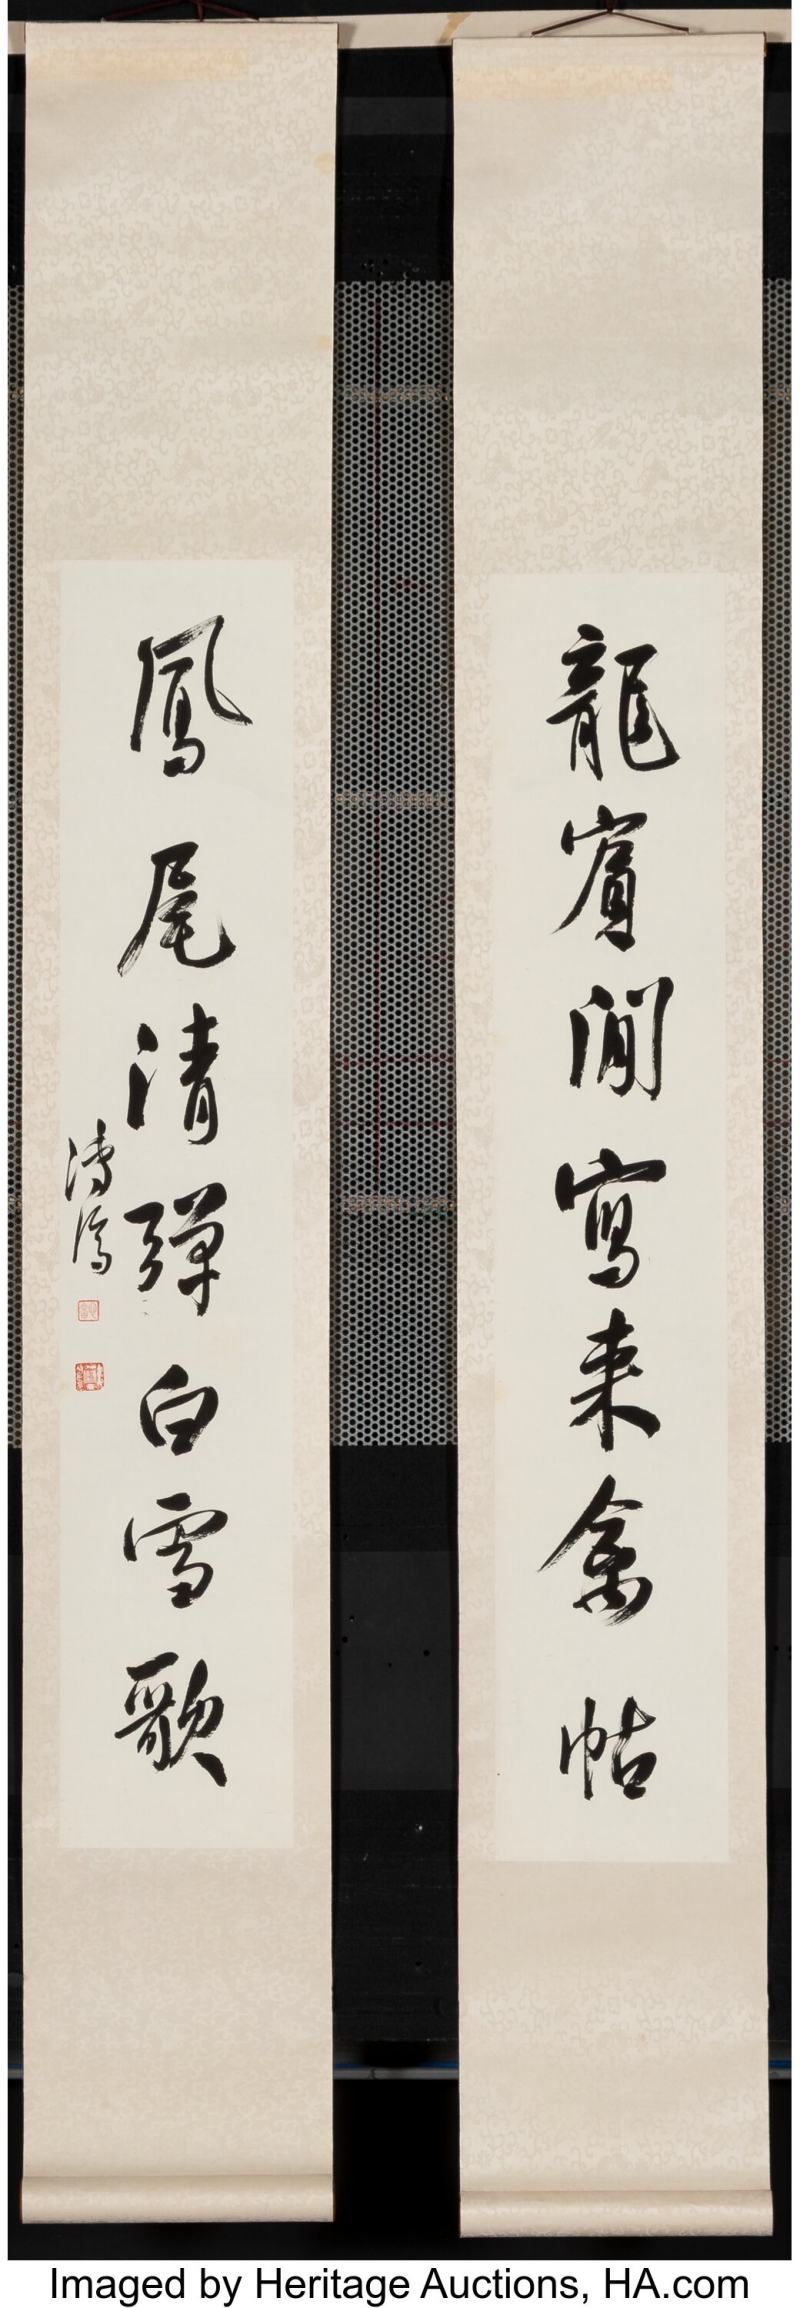 龍賓閒寫来禽帖
鳳尾清彈白雪歌
溥濡
Imaged by Heritage Auctions, HA.com